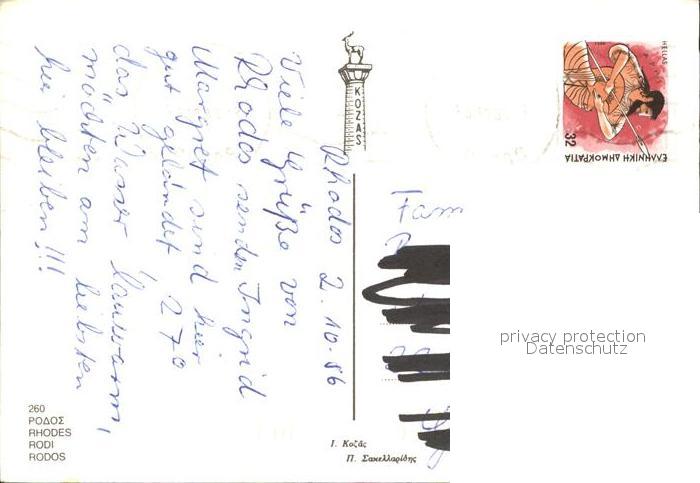 Rhodos 2.10.86
Viele Grüße von
Rhodos senden Ingrid
Margret sind hier
gut gelandet 27°
das Wasser lauwarm,
möchten am liebsten
hier bleiben!!!
260
ΡΟΔΟΣ
RHODES
RODI
RODOS
KOZAS
Ι. Κοζάς
Π. Σακελλαρίδης
HELLAS
32
ΕΛΛΗΝΙΚΗ ΔΗΜΟΚΡΑΤΙΑ
Fam
privacy protection
Datenschutz